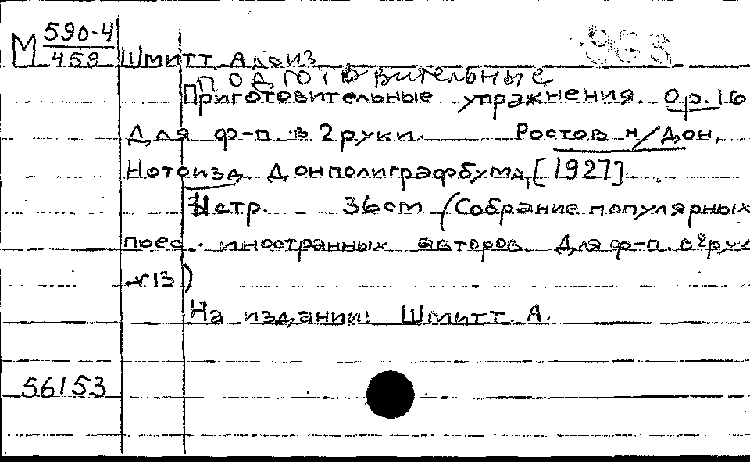 М 590-4
459
Шмитт Алоиз
963
Подготовительные
Приготовительные упражнения. Op. 16
Для ф-п. в 2 руки. Ростов н/Дон,
Нотоизд. Донполиграфбума, [1927]
стр. 36 cm (Собрание популярных
иностранных авторов. Для ф-п. в 2 рук
№ 13)
На издании: Шмитт А.
56153